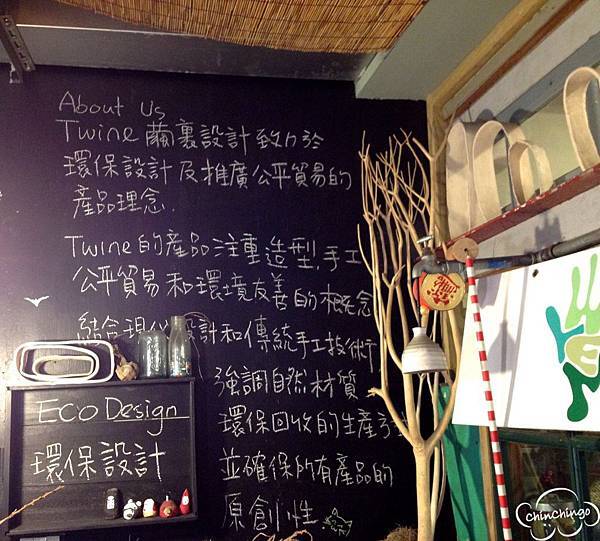 About Us
Twine 繭裹設計致力於
環保設計及推廣公平貿易的
產品理念.
Twine的產品注重造型,手工
公平貿易和環境友善的概念
結合現代設計和傳統手工技術
強調自然材質
環保回收的生產
並確保所有產品的
原創性
ECO Design
環保設計
chinchingo